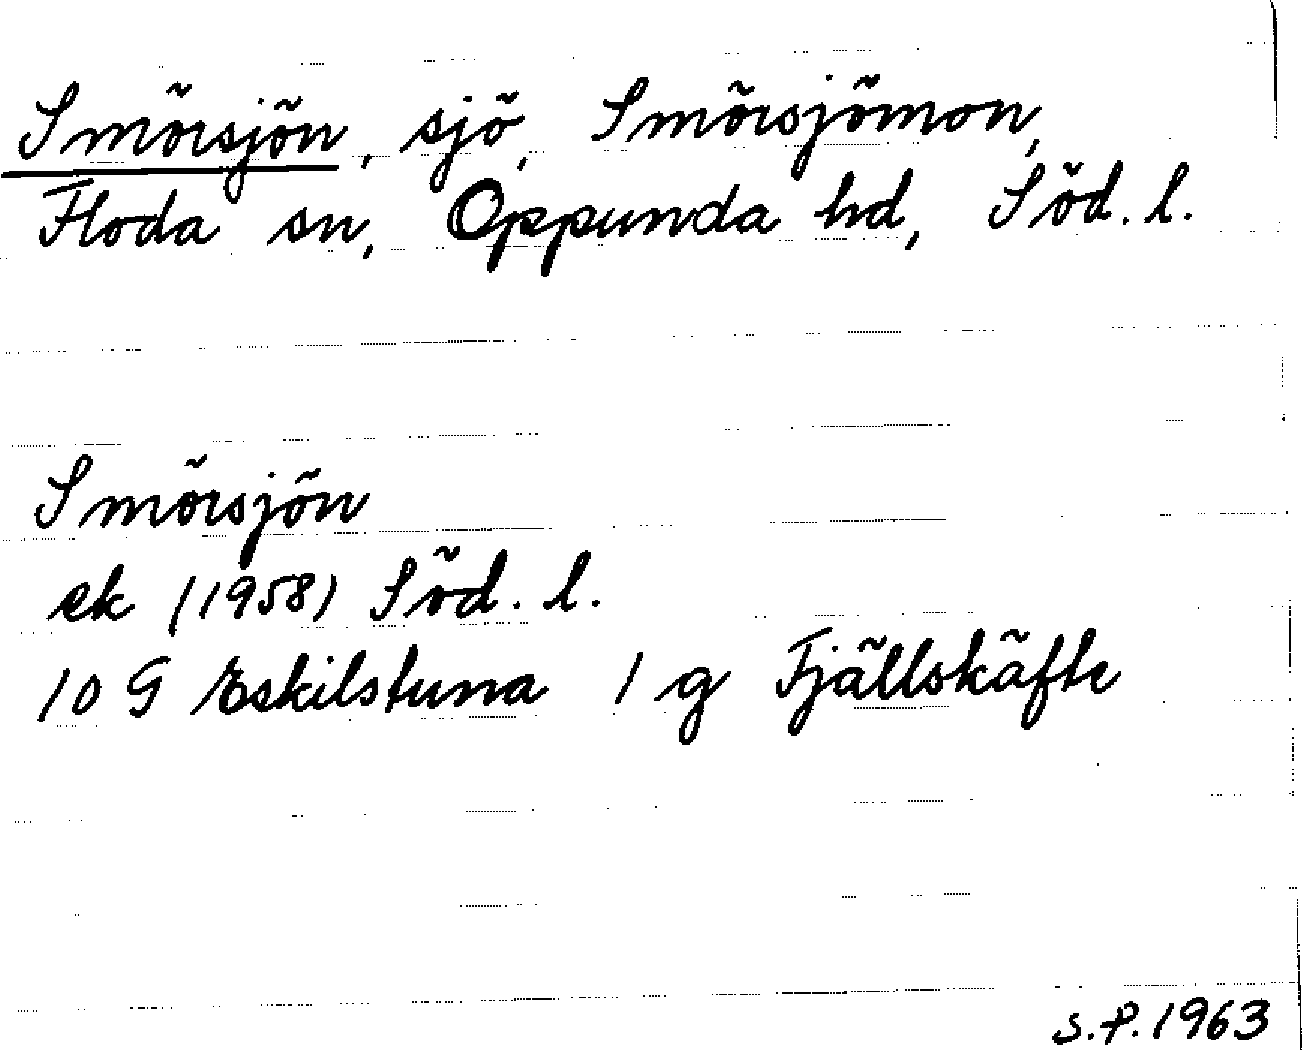 Smörsjön, sjö, Smörsjömon,
Floda sn, Oppunda hd, Söd. l.
Smörsjön
ek (1958) Söd. l.
10 G Eskilstuna 1 g Fjällskäfte
S.P. 1963